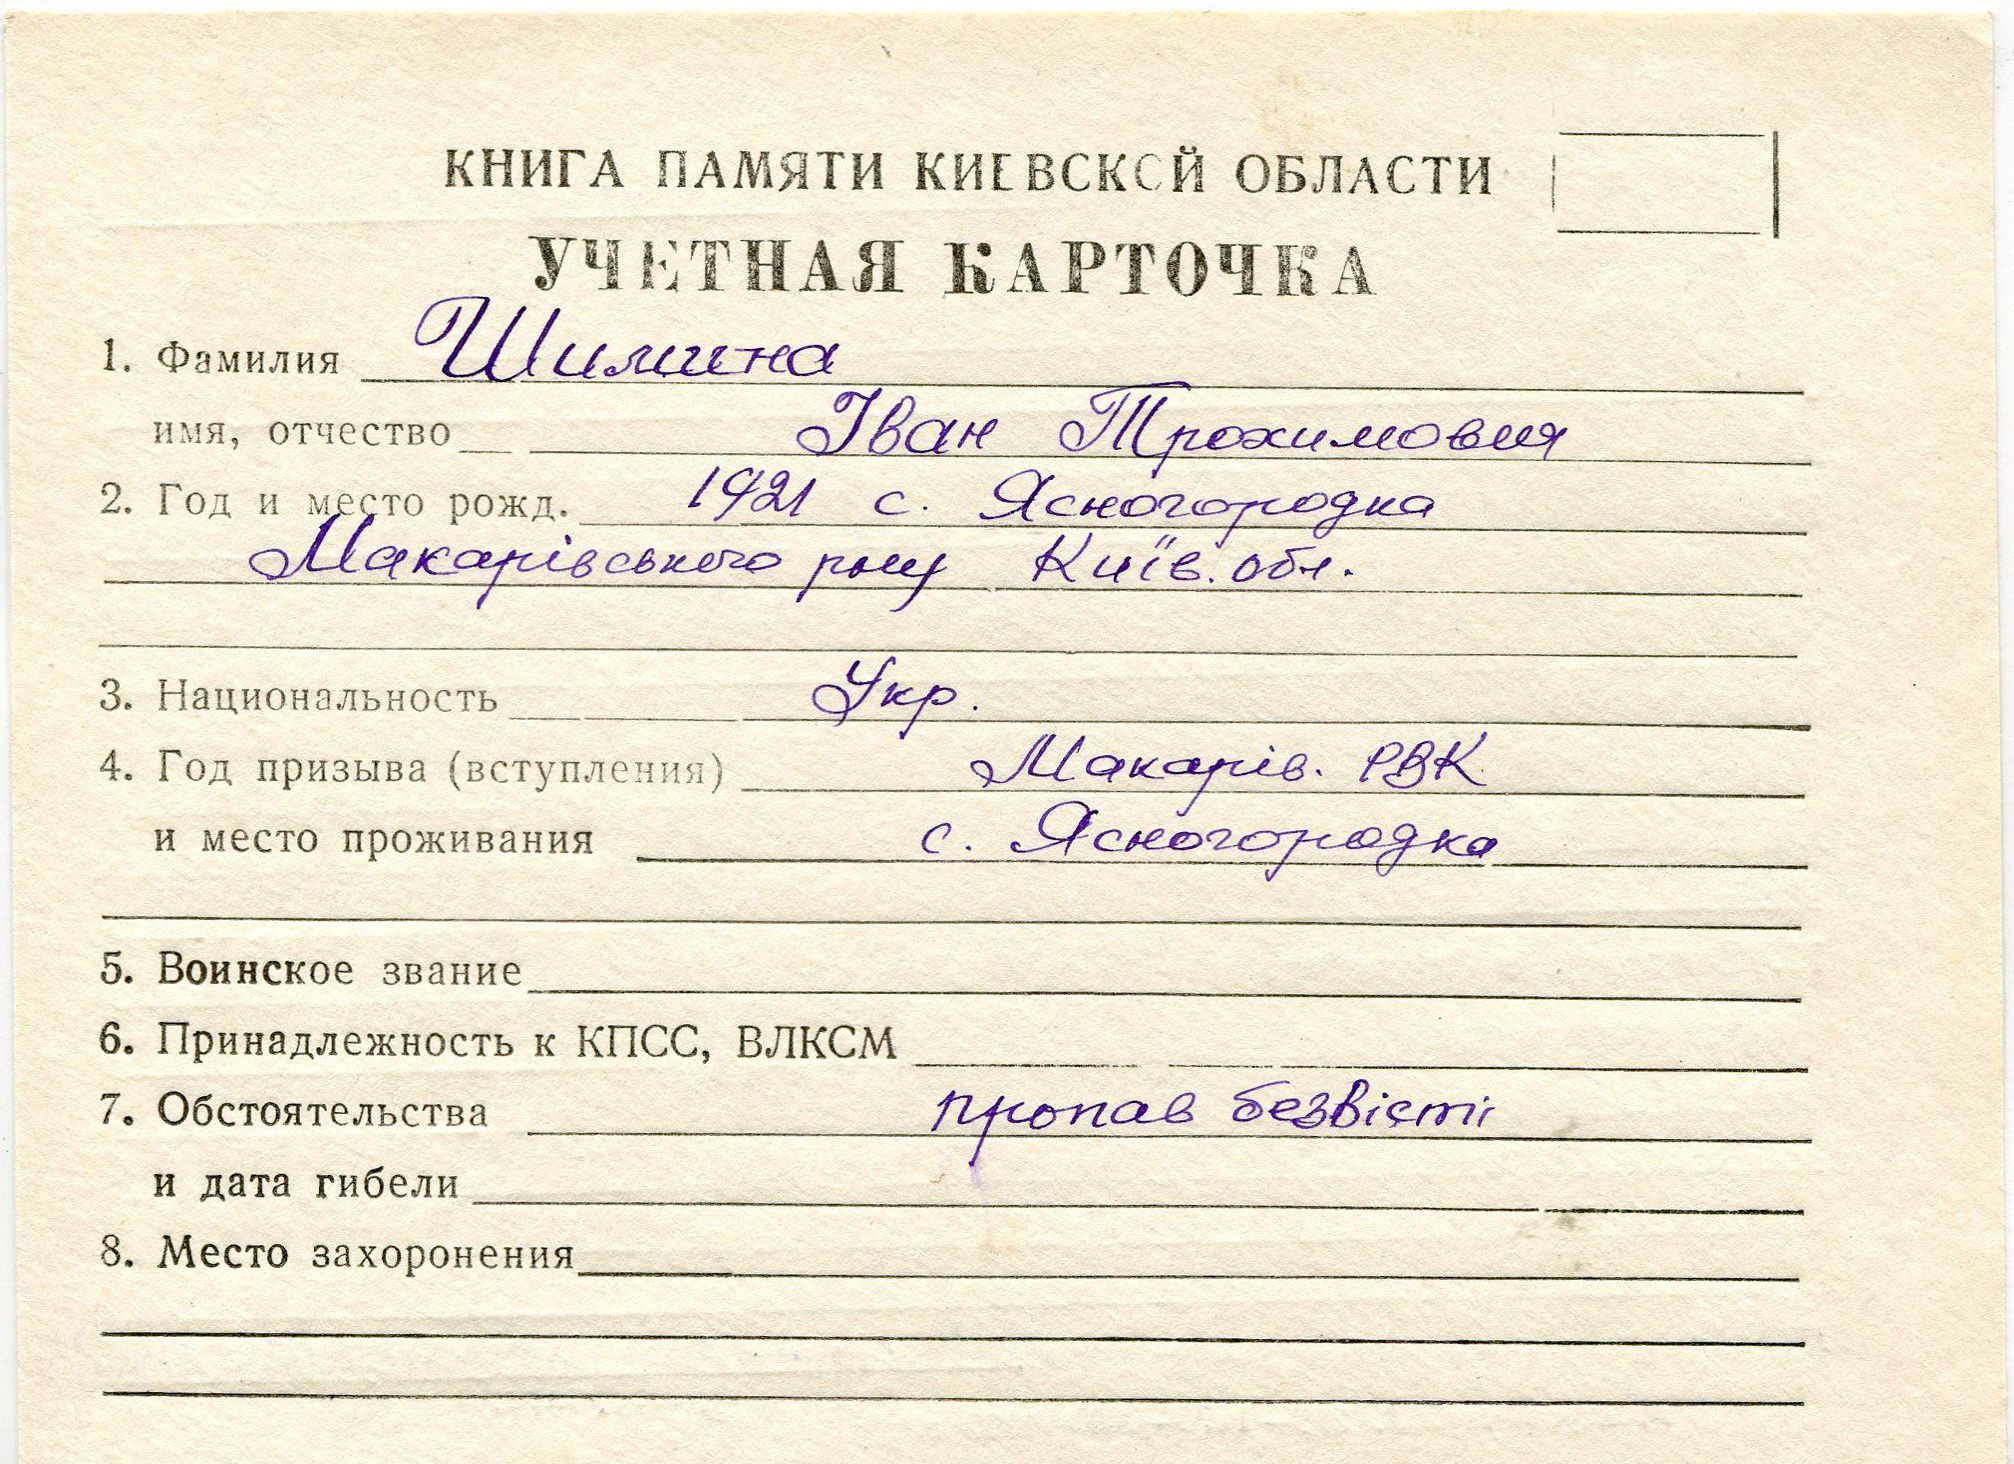 КНИГА ПАМЯТИ КИЕВСКОЙ ОБЛАСТИ
УЧЕТНАЯ КАРТОЧКА
1. Фамилия Шимина
имя, отчество Іван Трохимович
2. Год и место рожд. 1921 с. Ясногородка
Макарівського р-ну Київ. обл.
3. Национальность Укр.
4. Год призыва (вступления) Макарів. РВК
и место проживания с. Ясногородка
5. Воинское звание
6. Принадлежность к КПСС, ВЛКСМ
7. Обстоятельства пропав безвісті
и дата гибели
8. Место захоронения